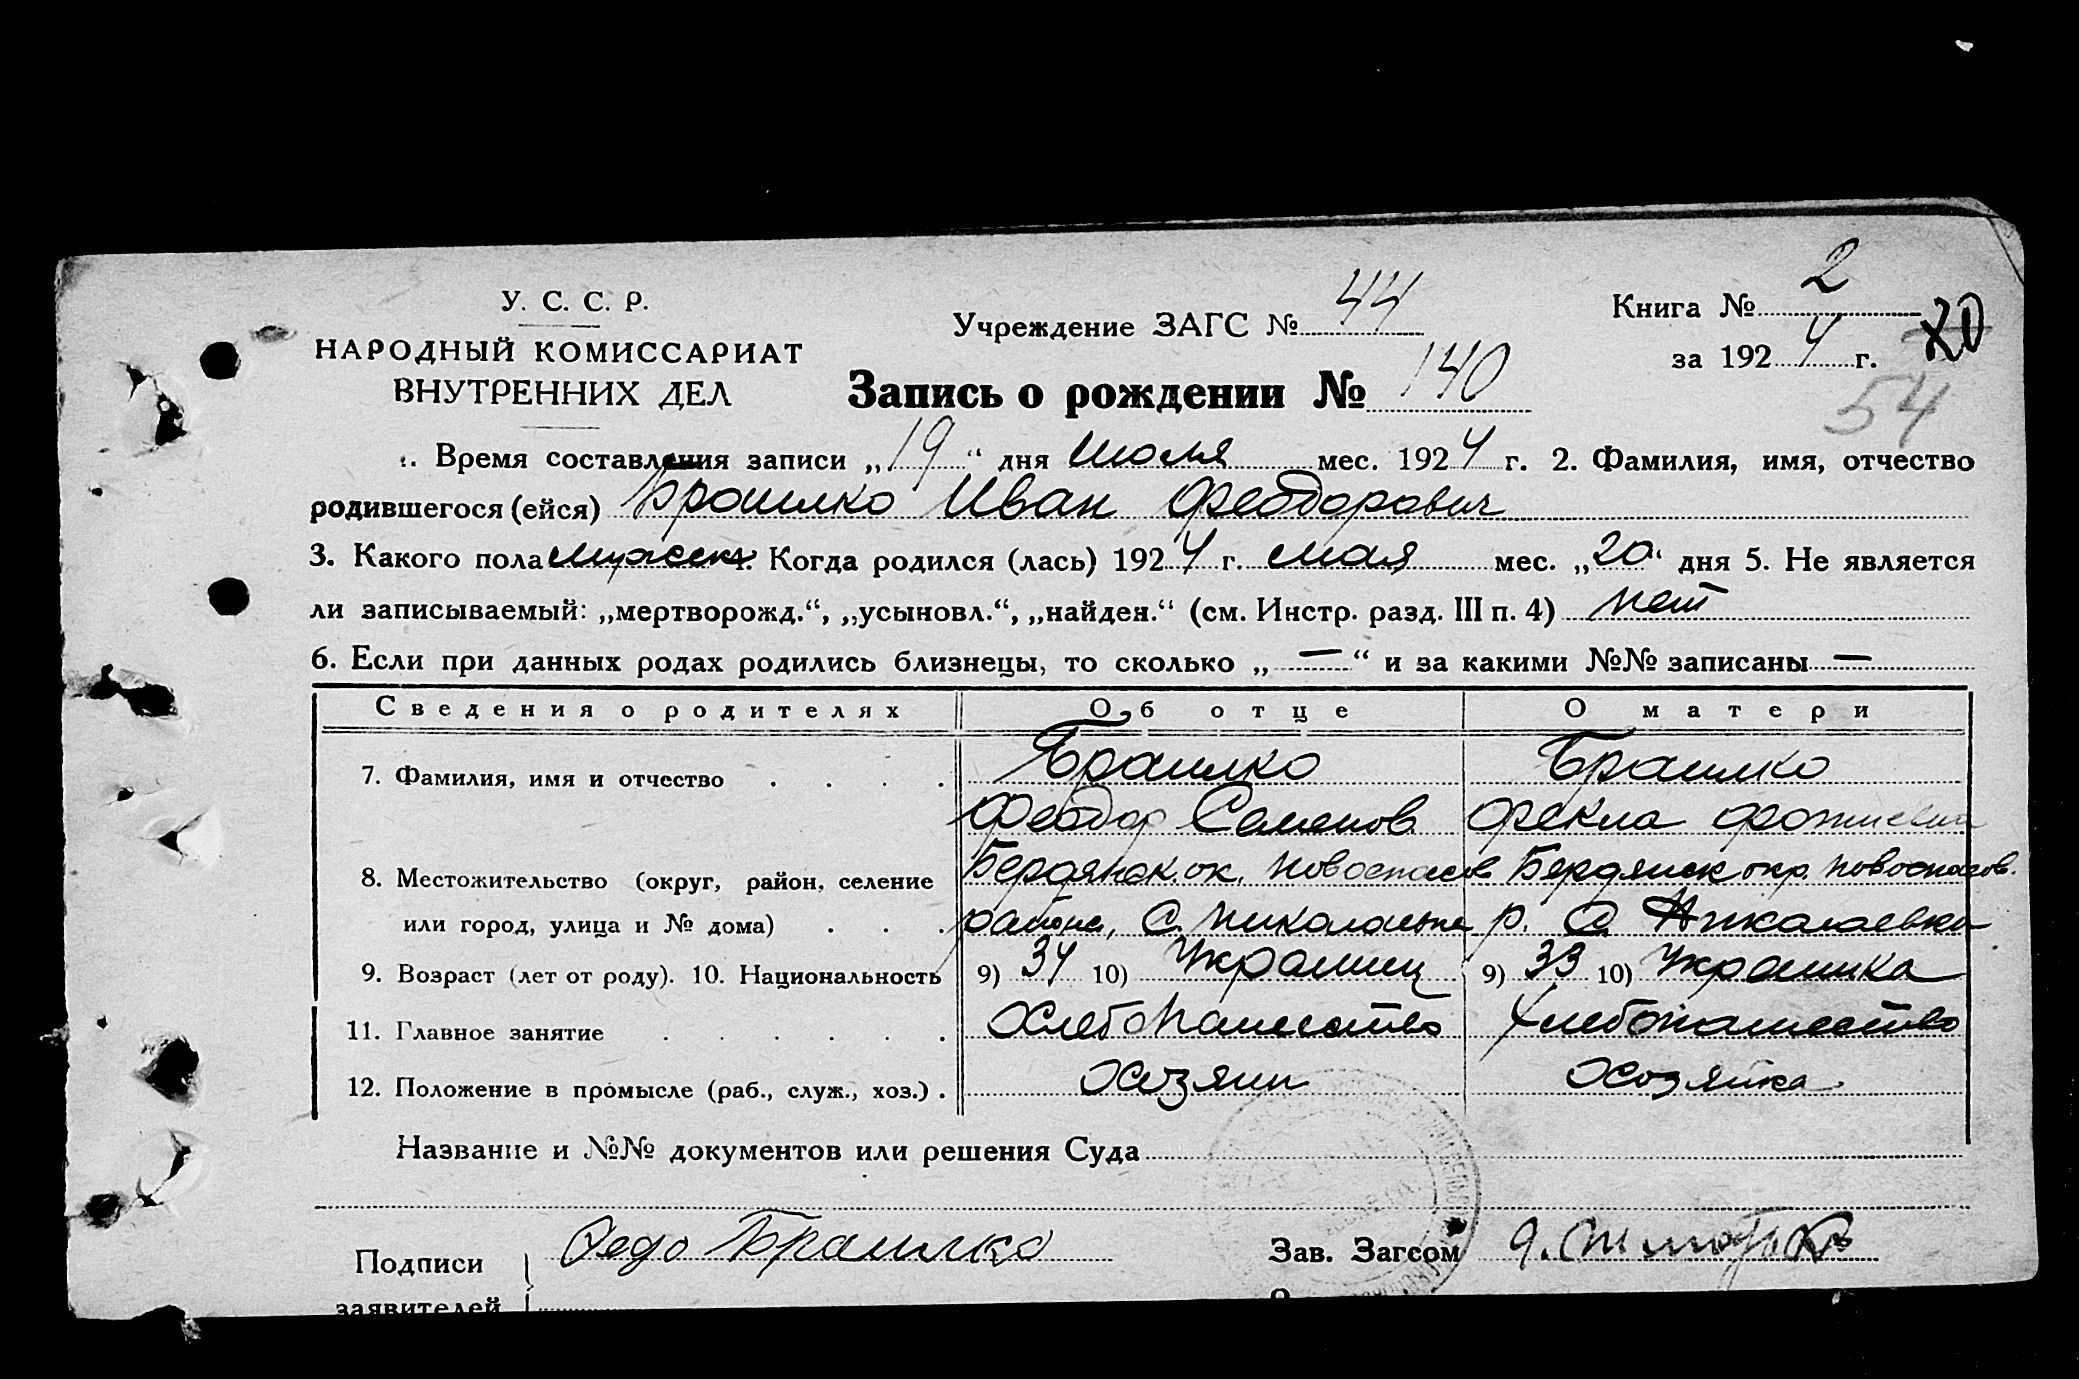 У. С. С. Р.
НАРОДНЫЙ КОМИССАРИАТ
ВНУТРЕННИХ ДЕЛ
Учреждение ЗАГС № 44
Книга № 2
за 1924 г.
20
54
Запись о рождении № 140
1. Время составления записи „19“ дня июля мес. 1924 г. 2. Фамилия, имя, отчество
родившегося (ейся) Браилко Иван Феодорович
3. Какого пола мужск. Когда родился (лась) 1924 г. мая мес. „20“ дня 5. Не является
ли записываемый: „мертворожд.“, „усыновл.“, „найден.“ (см. Инстр. разд. III п. 4) нет
6. Если при данных родах родились близнецы, то сколько „—“ и за какими №№ записаны —
Сведения о родителях Об отце О матери
7. Фамилия, имя и отчество Браилко Браилко
Феодор Семенов Фекла
8. Местожительство (округ, район, селение Бердянск. ок. Новоспасов Бердянск окр. Новоспасов.
или город, улица и № дома) района, С. Николаевка р. С. Николаевка
9. Возраст (лет от роду). 10. Национальность 9) 34 10) Украинец 9) 33 10) Украинка
11. Главное занятие Хлебопашество Хлебопашество
12. Положение в промысле (раб., служ., хоз.) Хозяин Хозяйка
Название и №№ документов или решения Суда
Подписи Федо Браилко Зав. Загсом
заявителей